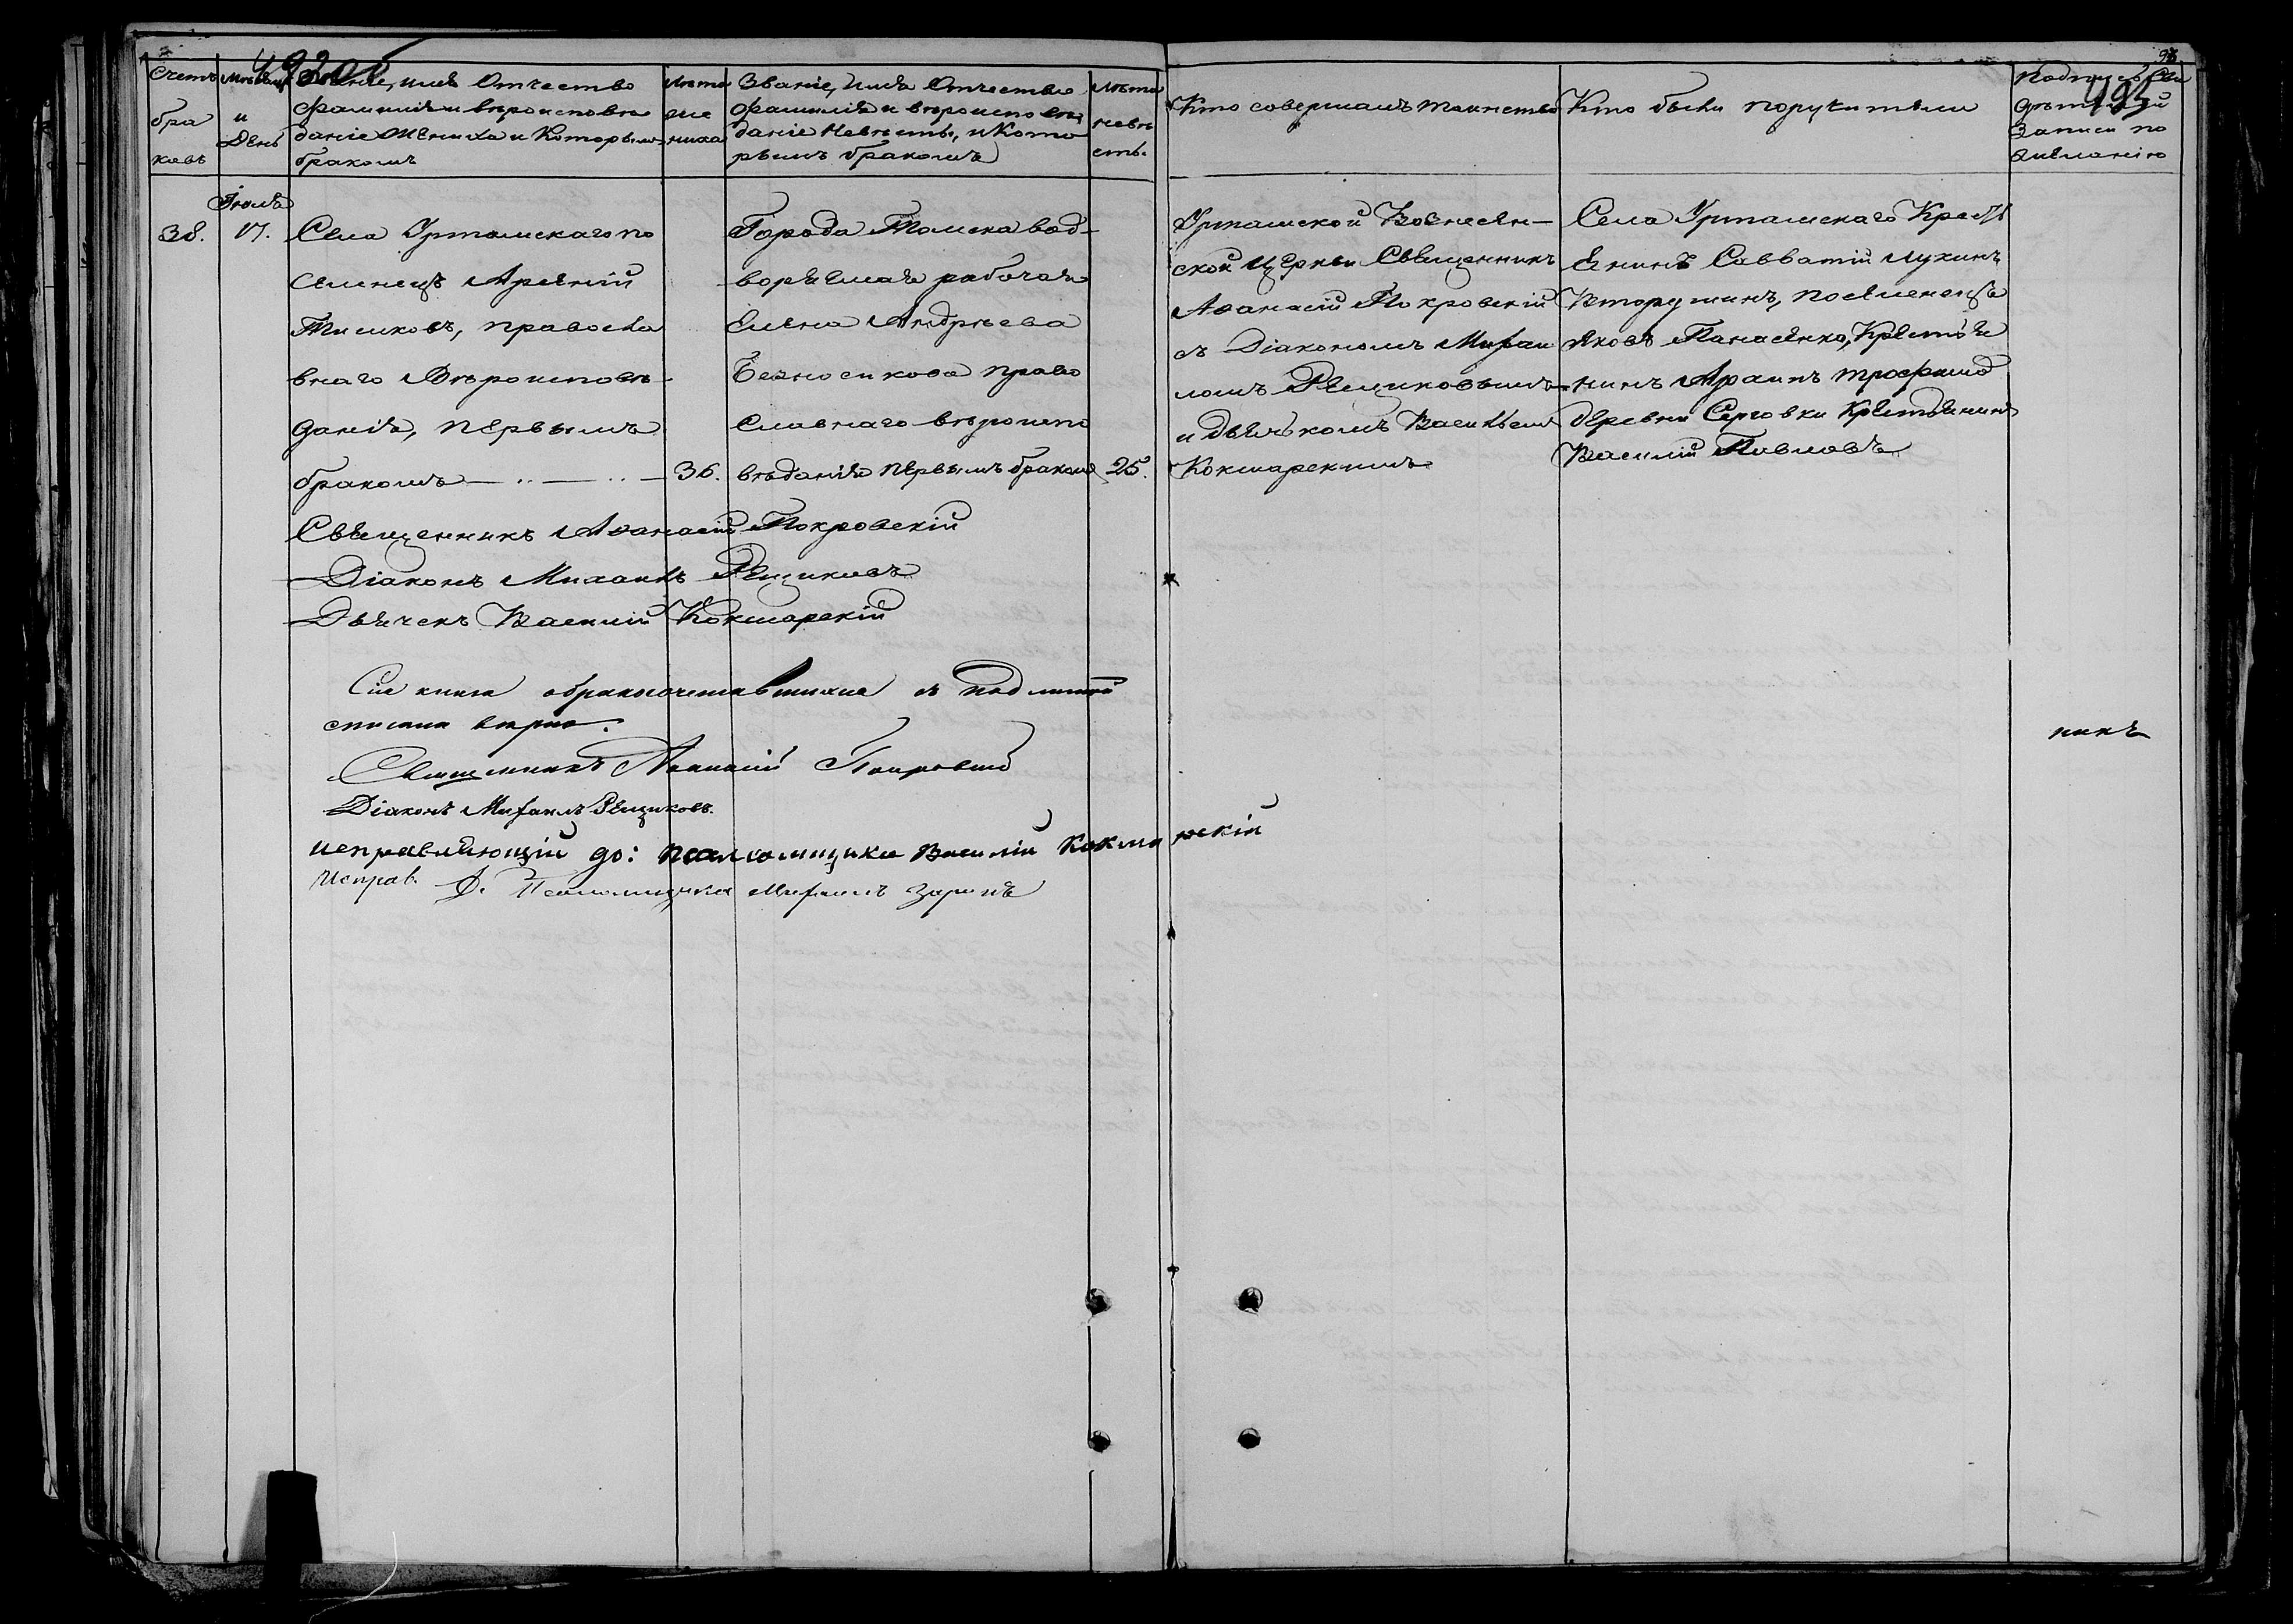 492 об
93
493
Счетъ бра ковъ
Мѣсяцъ и День
Званіе, имя Отчество
Фамилія и вѣроисповѣ
даніе Жениха и Которымъ
бракомъ
Лѣта же ниха
Званіе, Имя Отчество
Фамилія и вѣроисповѣ
даніе Невѣсты, и Кото
рымъ бракомъ
Лѣта невѣ сты.
Кто совершалъ таинство
Кто были поручители
Подпись Сви
дѣтелей
Записи по
желанію
Іюля
38.
17.
Села Уртамскаго по
селенецъ Арсеній
Тишковъ, правосла
внаго Вѣроисповѣ
данія, первымъ
бракомъ
36.
Города Томска вод-
воряемая рабочая
Елена Андрѣева
Безносикова право
славнаго вѣроиспо
вѣданія первымъ бракомъ
25.
Уртамской Вознесен-
ской Церкви Священникъ
Аѳанасій Покровскій
съ Діакономъ Михаи
ломъ Рещиковымъ
и дьячкомъ Васильемъ
Кокшарскимъ
Села Уртамскаго Кресть
янинъ Савватій Лукинъ
Вторушинъ, поселенецъ
Яковъ Панасенко, Крестья
нинъ
деревни Серговки Крестьянинъ
Василій Павловъ
Священникъ Аѳанасій Покровскій
Діаконъ Михаилъ Рещиковъ
Дьячекъ Василій Кокшарскій
Сія книга о бракосочетавшихся съ подлинной
списана вѣрно.
Священникъ Аѳанасій Покровскій
Діаконъ Михаилъ Рещиковъ.
исправляющій до: псаломщика Василій Кокшарскій
Исправ. д. Псаломщика Михаилъ Заринъ
никъ